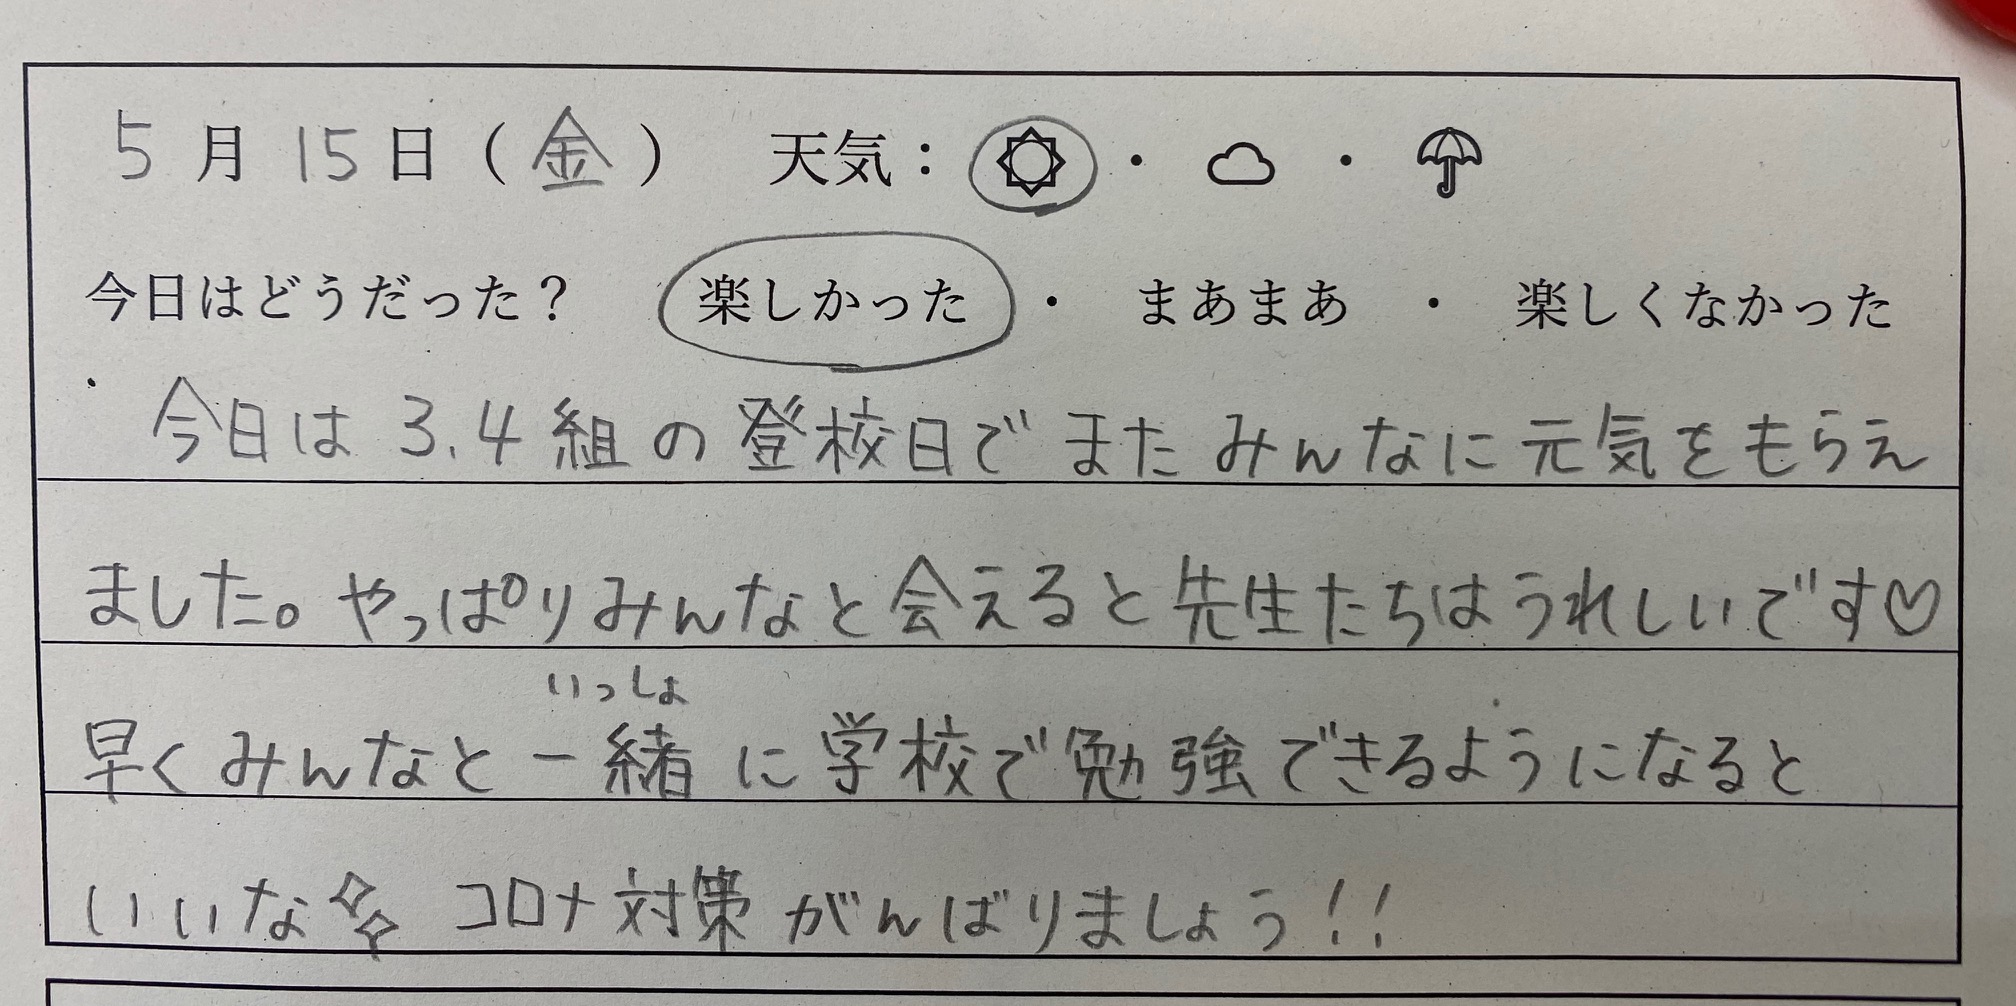 5月15日（金）　天気：☼・☁・☂
今日はどうだった？　楽しかった・まあまあ・楽しくなかった
今日は3.4組の登校日でまたみんなに元気をもらえ
ました。やっぱりみんなと会えると先生たちはうれしいです♡
いっしょ
早くみんなと一緒に学校で勉強できるようになると
いいな コロナ対策がんばりましょう!!